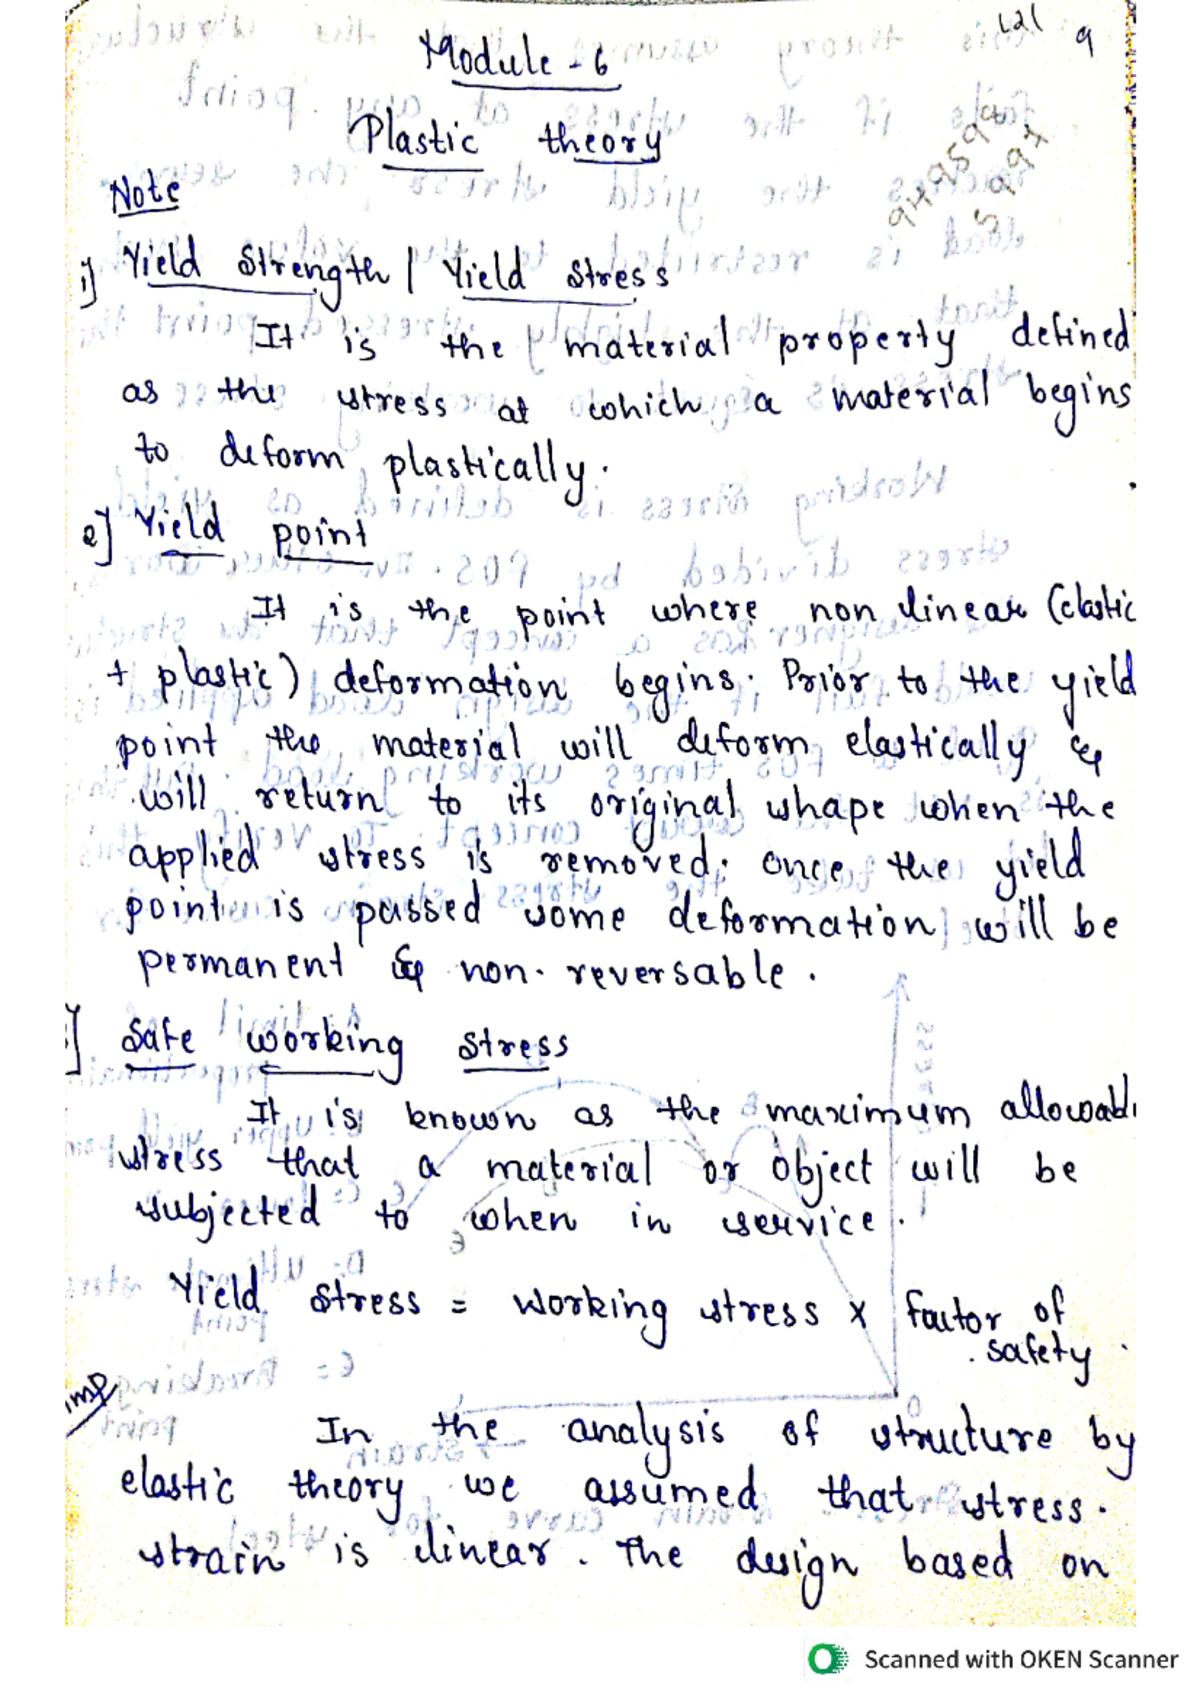 121 9
Module - 6
Plastic theory
9449599
5997
Note
1] Yield Strength / Yield Stress
It is the material property defined
as the stress at which a material begins
to deform plastically.
2] Yield point
It is the point where non linear (elastic
+ plastic) deformation begins. Prior to the yield
point the material will deform elastically &
will return to its original shape when the
applied stress is removed. Once the yield
point is passed some deformation will be
permanent & non-reversable.
] Safe working stress
It is known as the maximum allowabl
stress that a material or object will be
subjected to when in service.
Yield Stress = Working stress x factor of
safety.
imp
In the analysis of structure by
elastic theory we assumed that stress-
strain is linear. The design based on
Scanned with OKEN Scanner